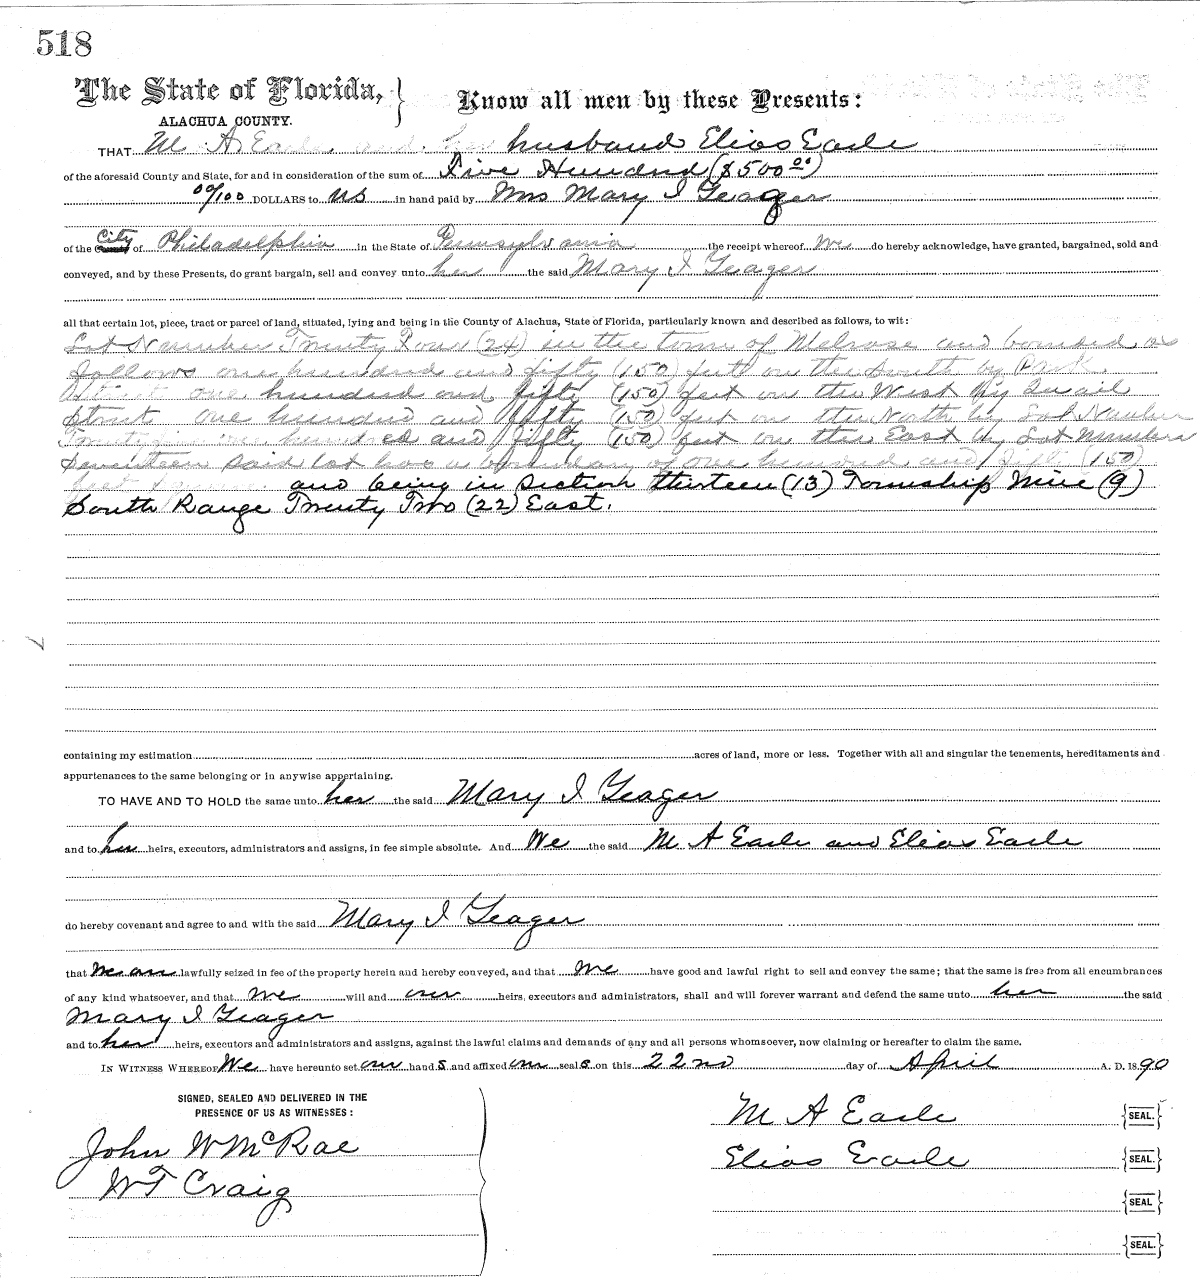 518
The State of Florida,
ALACHUA COUNTY.
Know all men by these Presents:
THAT M A Earle and her husband Elias Earle
of the aforesaid County and State, for and in consideration of the sum of Five Hundred ($500.00)
00/100 DOLLARS to us in hand paid by Mrs Mary I Yeager
of the City of Philadelphia in the State of Pennsylvania the receipt whereof we do hereby acknowledge, have granted, bargained, sold and
conveyed, and by these Presents, do grant bargain, sell and convey unto her the said Mary I Yeager
all that certain lot, piece, tract or parcel of land, situated, lying and being in the County of Alachua, State of Florida, particularly known and described as follows, to wit:
Lot Number Twenty Four (24) in the town of Melrose and bounded as
follows one hundred and fifty (150) feet on the South by Park
Street one hundred and fifty (150) feet on the West by Quail
Street one hundred and fifty (150) feet on the North by Lot Number
one hundred and fifty (150) feet on the East by Lot Number
Seventeen said lot has a boundary of one hundred and fifty (150)
feet and being in Section thirteen (13) Township Nine (9)
South Range Twenty Two (22) East.
containing my estimation acres of land, more or less. Together with all and singular the tenements, hereditaments and
appurtenances to the same belonging or in anywise appertaining.
TO HAVE AND TO HOLD the same unto her the said Mary I Yeager
and to her heirs, executors, administrators and assigns, in fee simple absolute. And We the said M A Earle and Elias Earle
do hereby covenant and agree to and with the said Mary I Yeager
that we are lawfully seized in fee of the property herein and hereby conveyed, and that we have good and lawful right to sell and convey the same; that the same is free from all encumbrances
of any kind whatsoever, and that we will and our heirs, executors and administrators, shall and will forever warrant and defend the same unto her the said
Mary I Yeager
and to her heirs, executors and administrators and assigns, against the lawful claims and demands of any and all persons whomsoever, now claiming or hereafter to claim the same.
IN WITNESS WHEREOF We have hereunto set our hand s and affixed our seal s on this 22nd day of April A. D. 1890
SIGNED, SEALED AND DELIVERED IN THE
PRESENCE OF US AS WITNESSES:
John W McRae
W T Craig
M A Earle {SEAL.}
Elias Earle {SEAL.}
{SEAL}
{SEAL.}